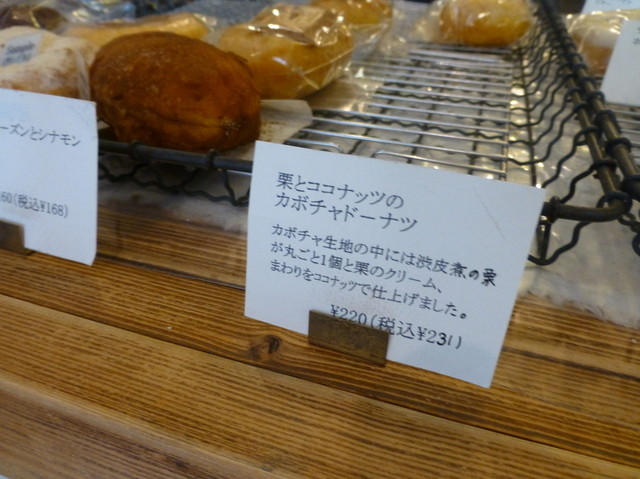 ーズンとシナモン
160(税込¥168)
栗とココナッツの
カボチャドーナツ
カボチャ生地の中には渋皮煮の栗
が丸ごと1個と栗のクリーム、
まわりをココナッツで仕上げました。
¥220(税込¥231)